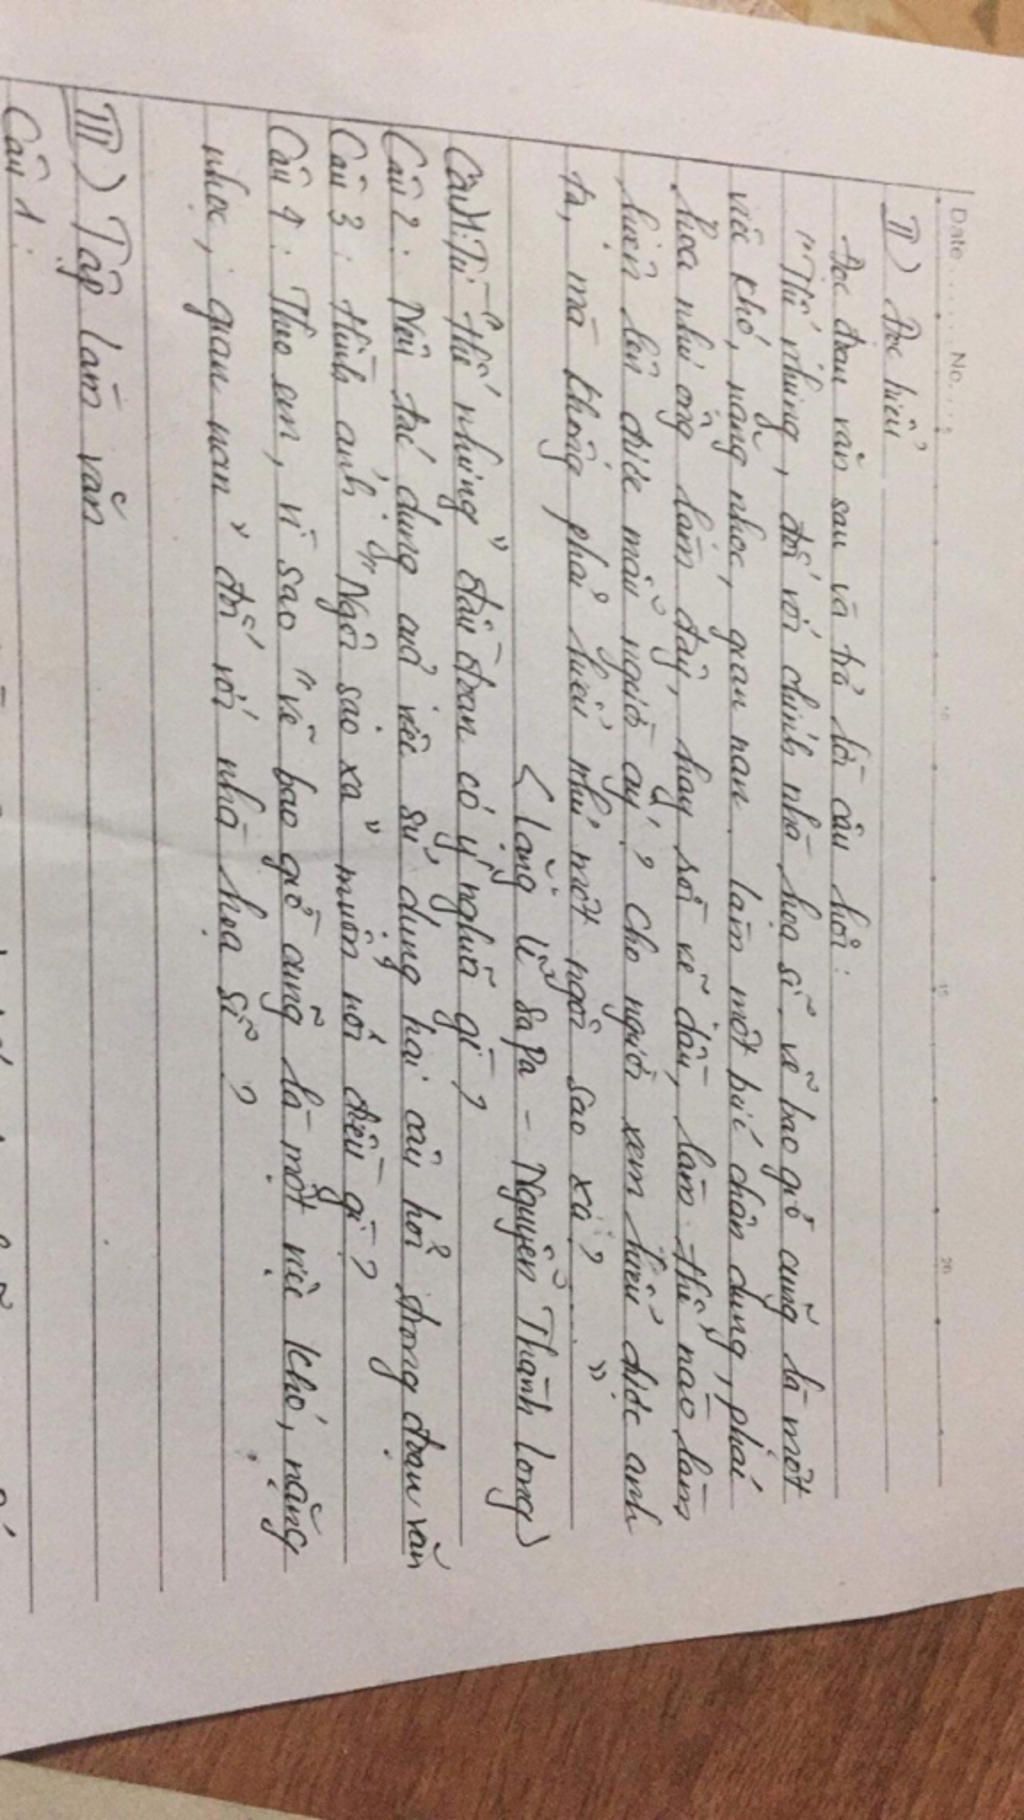 Date ..... No. ....
10 15 20
II) Đọc hiểu
Đọc đoạn văn sau và trả lời câu hỏi:
"Thế nhưng, đối với chính nhà họa sĩ, vẽ bao giờ cũng là một
việc khó, nặng nhọc, gian nan. làm một bức chân dung, phác
họa như ông làm đây, hay rồi vẽ dầu, làm thế nào làm
hiện lên được mẫu người ấy? Cho người xem hiểu được anh
ta, mà không phải hiểu như một ngôi sao xa? ... "
< lặng lẽ Sa Pa - Nguyễn Thành long)
Câu 1: Từ "Thế nhưng" đầu đoạn có ý nghĩa gì?
Câu 2: Nêu tác dụng của việc sử dụng hai câu hỏi trong đoạn văn
Câu 3: Hình ảnh "Ngôi sao xa" muốn nói điều gì?
Câu 4: Theo em, vì sao "vẽ bao giờ cũng là một việc khó, nặng
nhọc, gian nan" đối với nhà họa sĩ?
III) Tập làm văn
Câu 1: